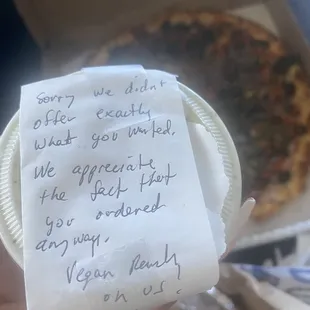 Sorry we didn't
offer exactly
what you wanted.
We appreciate
the fact that
you ordered
anyway.
Vegan Ranch
on us.